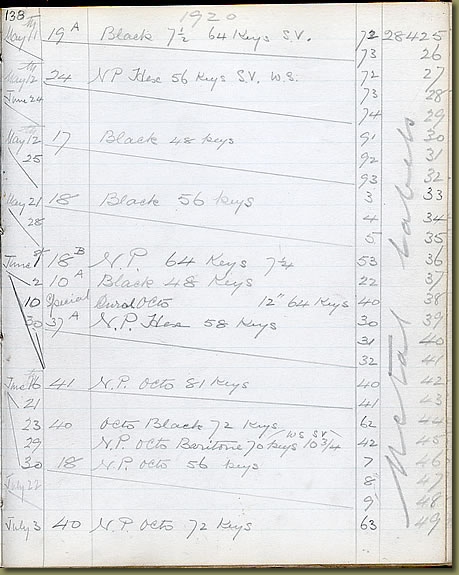 138 1920
May 11th 19A Black 7½ 64 Keys S.V. 72 28425
73 26
May 12th 24 N.P. Hex 56 Keys S.V. W.S. 72 27
June 24 73 28
74 29
May 12th 17 Black 48 keys 91 30
25 92 31
93 32
May 21 18 Black 56 keys 3 33
28 4 34
5 35
June 1st 18B N.P. 64 Keys 7¼ 53 36
2 10A Black 48 Keys 22 37
10 Special Octo 12" 64 Keys 40 38
30 37A N.P. Hex 58 Keys 30 39
31 40
32 41
June 16 41 N.P. Octo 81 Keys 40 42
21 41 43
23 40 Octo Black 72 Keys 62 44
29 N.P. Octo Baritone 70 keys W.S. S.V. 10 3/4 42 45
30 18 N.P. Octo 56 keys 7 46
July 22 8 47
9 48
July 3 40 N.P. Octo 72 Keys 63 49
Metal Labels